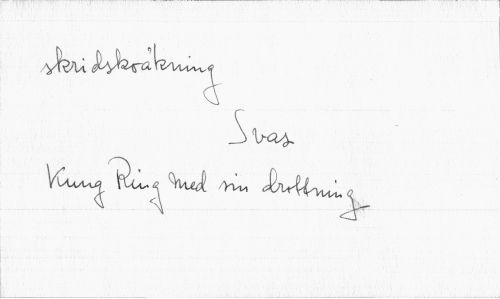 skridskoåkning
Svas
Kung Ring med sin drottning